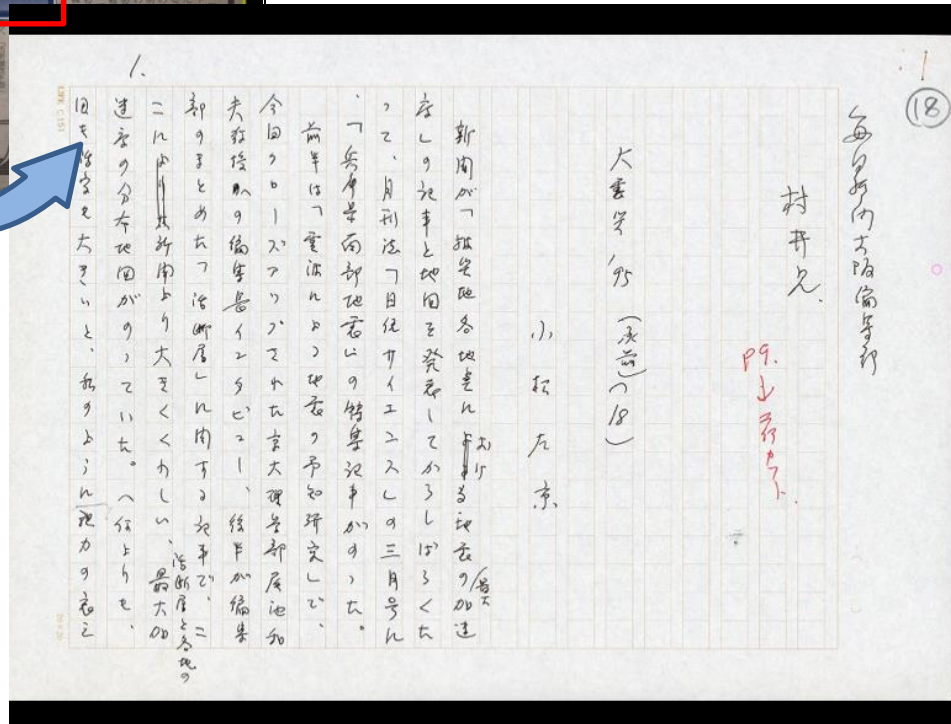 18
1
毎日新聞大阪編集部
村井兄.
P9.
大震災'95 (承前)(18)
小松左京
新聞が「被災地各地点における地震の最大加速
度」の記事と地図を発表してからしばらくた
って、月刊誌「日経サイエンス」の三月号に
、「兵庫県南部地震」の特集記事がのった。
前半は「電波による地震の予知研究」で、
今回クローズアップされた京大理学部尾池和
夫教授への編集長インタビュー、後半が編集
部のまとめた「活断層」に関する記事で、こ
これにより新聞より大きくくわしい、活断層と各地の最大加
速度の分布地図がのっていた。(何よりも、
図も活字も大きいと、私のように視力の衰え
1.
20×20